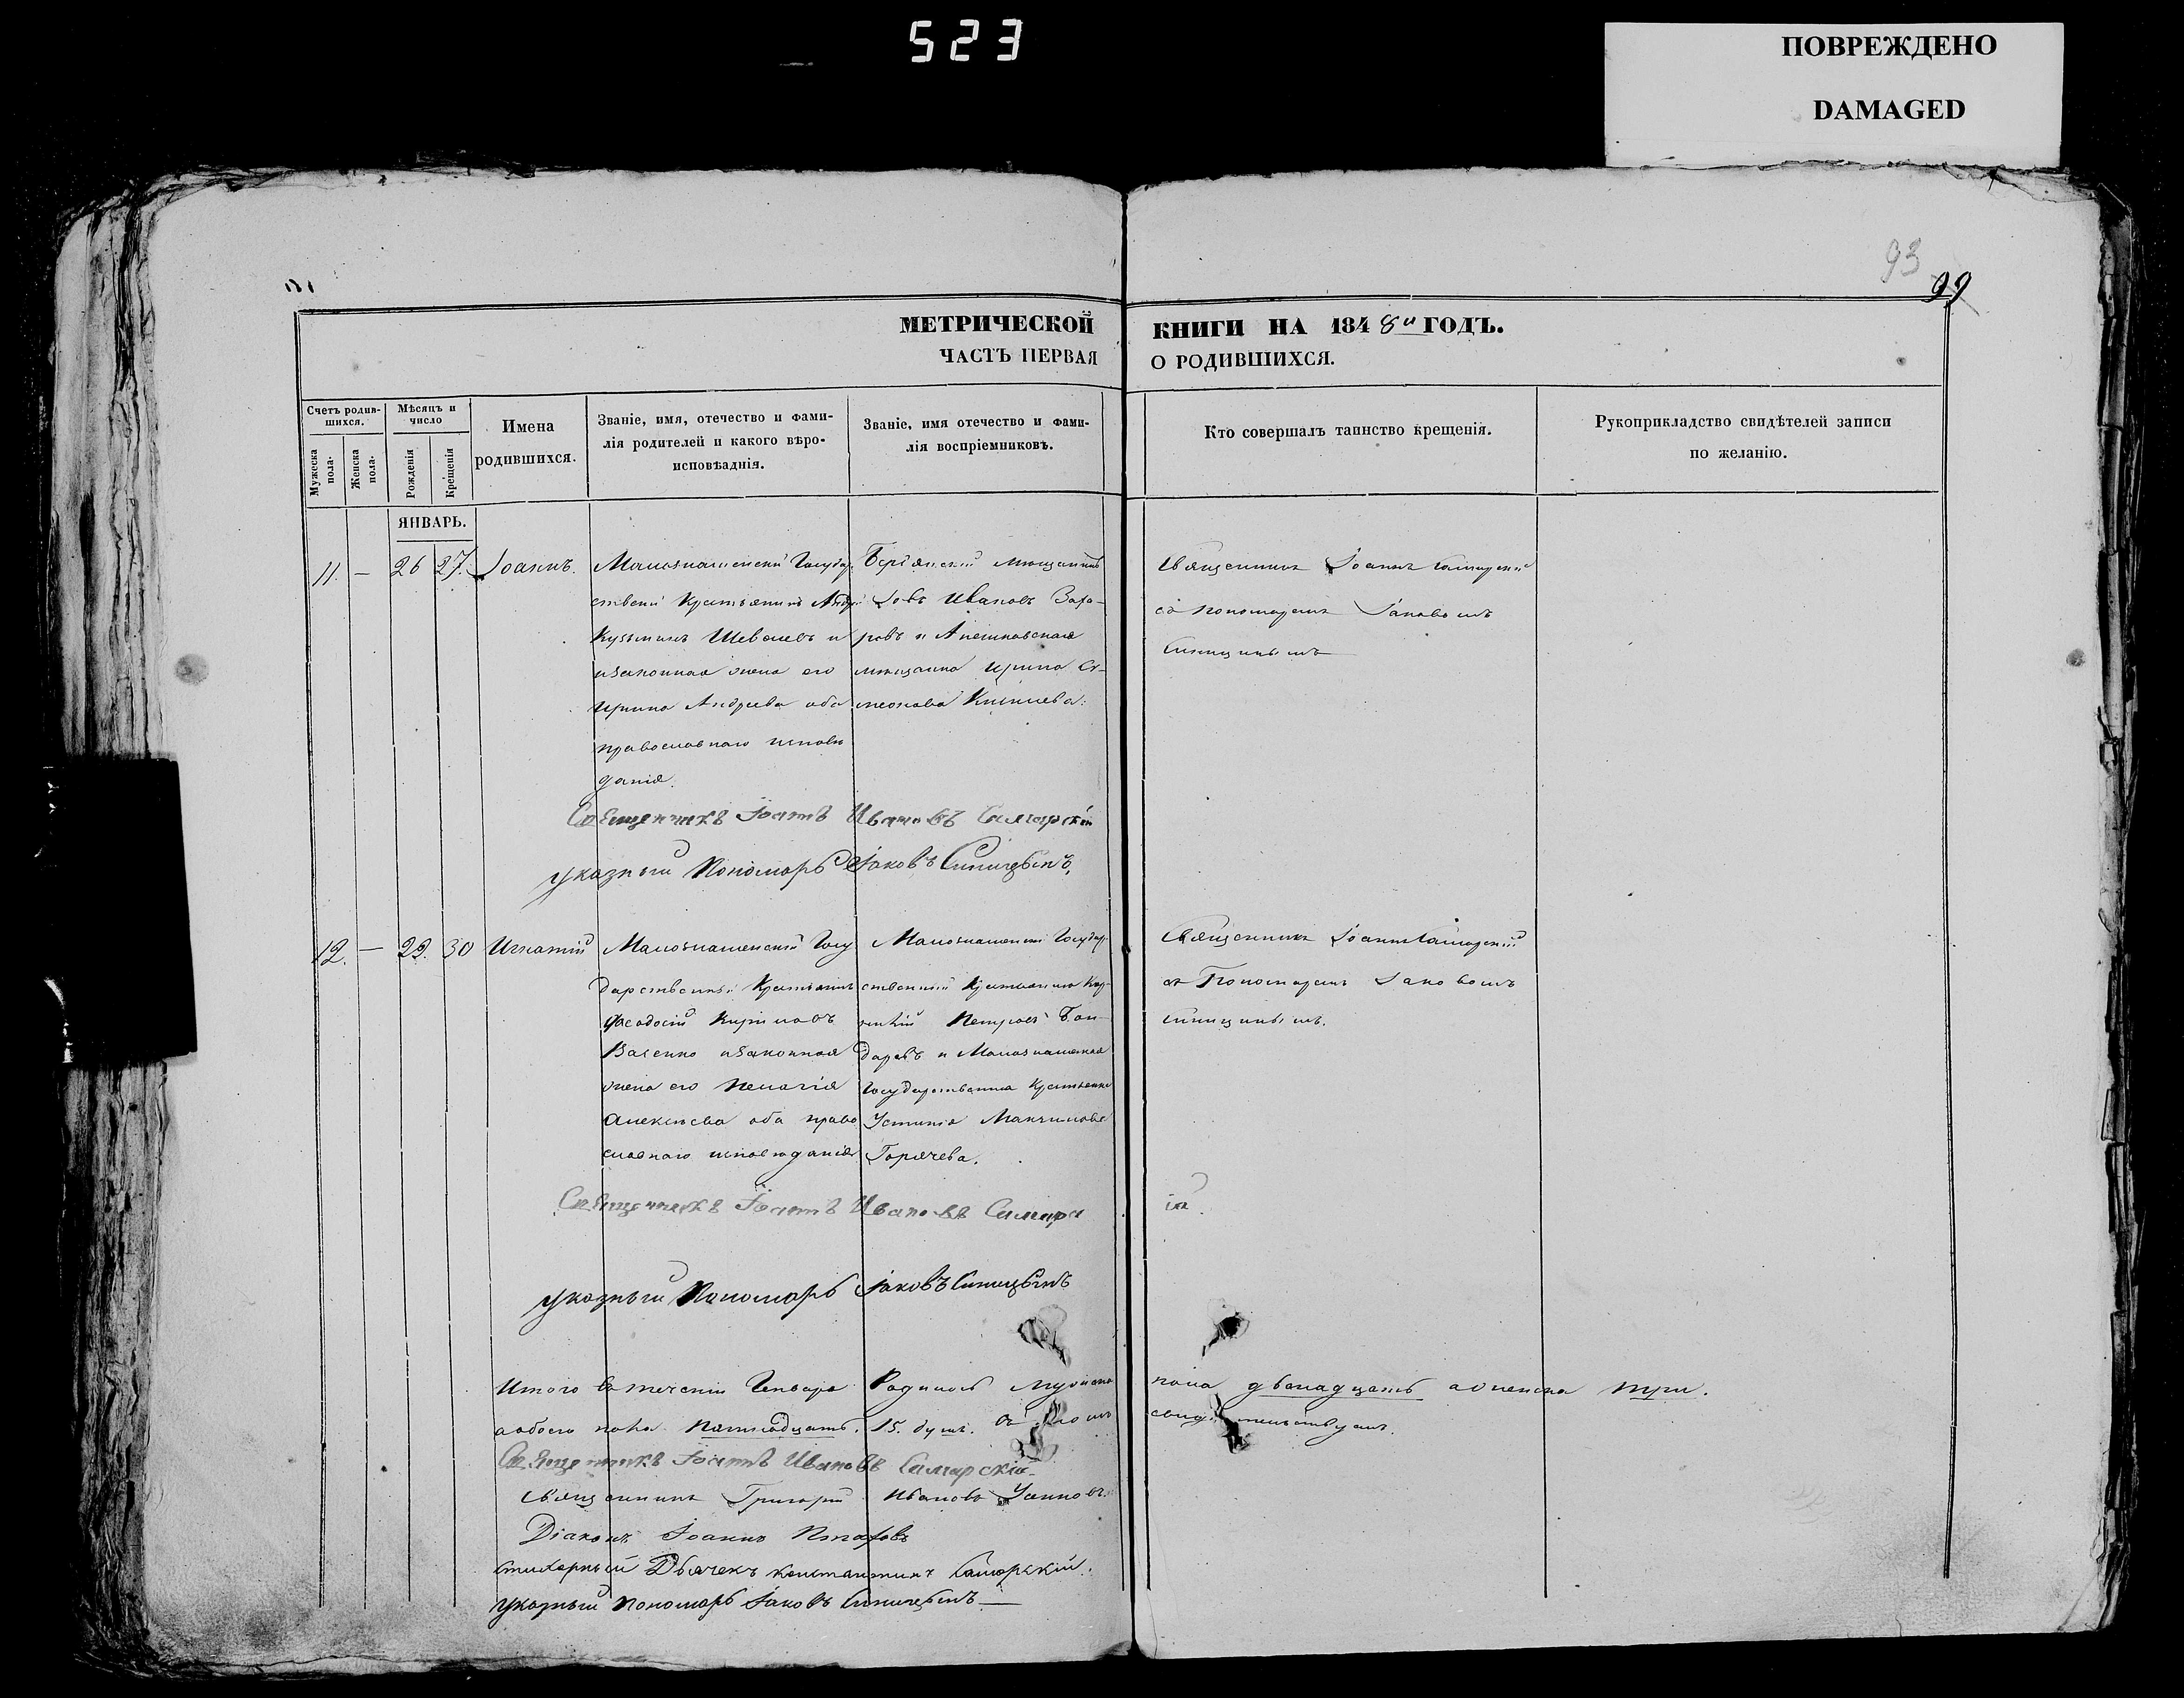 523
ПОВРЕЖДЕНО
DAMAGED
93
99
МЕТРИЧЕСКОЙ КНИГИ НА 1848й ГОДЪ.
ЧАСТЬ ПЕРВАЯ О РОДИВШИХСЯ.
Счетъ родив-
шихся.
Мужеска пола.
Женска пола.
Мѣсяцъ и
число
Рожденія
Крещенія
Имена
родившихся.
Званіе, имя, отечество и фами-
лія родителей и какого вѣро-
исповѣаднія.
Званіе, имя отечество и фами-
лія воспріемниковъ.
Кто совершалъ таинство крещенія.
Рукоприкладство свидѣтелей записи
по желанію.
ЯНВАРЬ.
11. — 26 27. Іоаннъ.
Малознаменскій Государ
ственный Крестьянинъ Андрей
Кузьминъ Шевелевъ и
изаконная жена его
Ирина Андреева оба
православнаго исповѣ
данія.
Бердянскій мѣщанинъ
Іовъ Ивановъ Заха-
ровъ и Алешковская
мѣщанка Ирина Си-
меонова
Священникъ Іоаннъ Самарскій
съ пономаремъ Іаковомъ
Синицынымъ
Священникъ Іоаннъ Ивановъ Самарскій
указный Пономарь Іаковъ Синицынъ.
12. — 29. 30 Игнатій
Малознаменскій Госу
дарственный Крестьянинъ
Феодосій Кириловъ
Васенко изаконная
жена его Пелагія
Алексѣева оба право
славнаго исповѣданія
Малознаменскій Государ-
ственный Крестьянинъ
Петровъ Бон-
даревъ и Малознаменская
Государственная Крестьянка
Устинія Максимова
Горячева.
Священникъ Іоаннъ Самарскій
съ Пономаремъ Іаковомъ
Синицынымъ.
Священникъ Іоаннъ Ивановъ Самарскій
указный Пономарь Іаковъ Синицынъ
Итого въ теченіи Генваря Родилось мужеска пола двенадцать аженска три.
аобоего пола пятнадцать. 15. душъ. въ томъ свидѣтельствуемъ.
Священникъ Іоаннъ Ивановъ Самарскій
Священникъ Григорій Ивановъ
Діаконъ Іоаннъ
Стихарный Дьячекъ Константинъ Самарскій.
Указный Пономарь Іаковъ Синицынъ